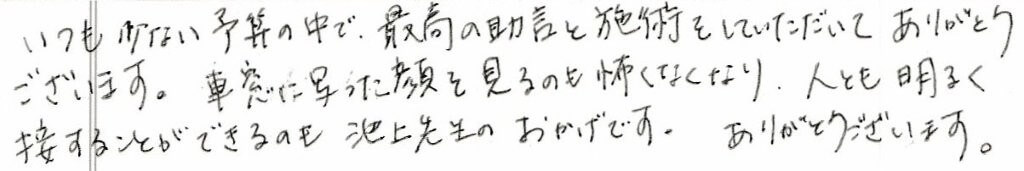 いつも少ない予算の中で、最高の助言と施術をしていただいてありがとう
ございます。車窓に写った顔を見るのも怖くなくなり、人とも明るく
接することができるのも池上先生のおかげです。ありがとうございます。